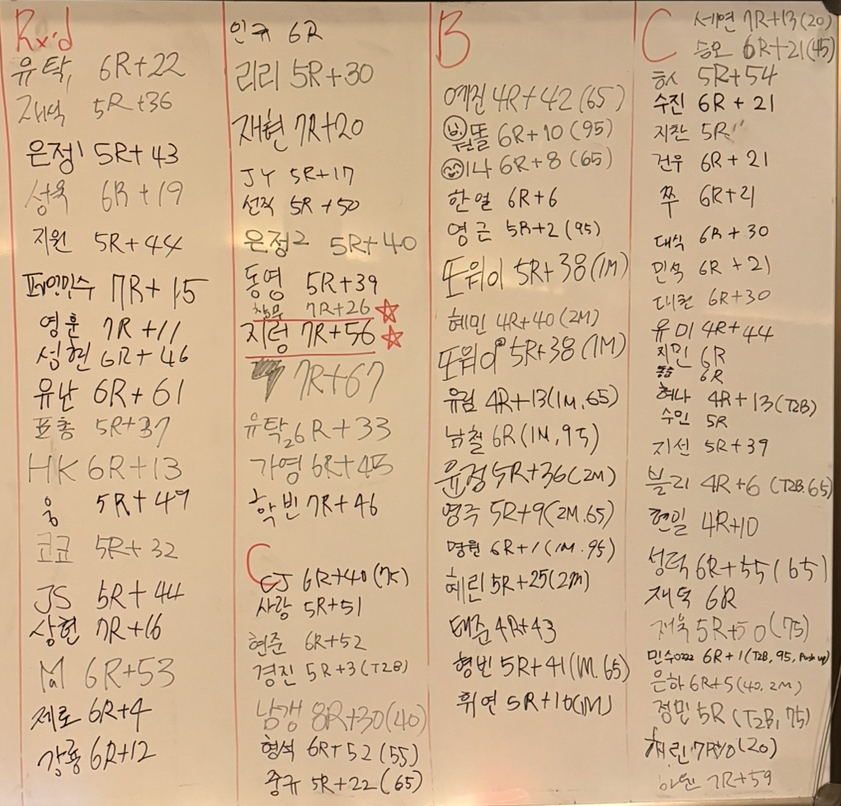 Rx'd
유탁1 6R+22
재덕 5R+36
은정1 5R+43
성욱 6R+19
지원 5R+44
페인민수 7R+15
영훈 7R+11
성현 6R+46
유난 6R+61
표총 5R+37
HK 6R+13
웅 5R+49
코코 5R+32
JS 5R+44
상현 7R+16
Ma 6R+53
제로 6R+4
강룡 6R+12
인규 6R
리리 5R+30
재현 7R+20
JY 5R+17
선직 5R+50
은정2 5R+40
동영 5R+39
7R+26
지렁 7R+56
7R+67
유탁2 6R+33
가영 6R+45
학빈 7R+46
C
CJ 6R+40(75)
사랑 5R+51
현준 6R+52
경진 5R+3(T2B)
남갱 8R+30(40)
형석 6R+52(55)
중규 5R+22(65)
B
예진 4R+42(65)
똘 6R+10(95)
이나 6R+8(65)
한얼 6R+6
영근 5R+2(95)
또위이 5R+38(1M)
혜민 4R+40(2M)
또위이 5R+38(1M)
유림 4R+13(1M,65)
남철 6R(1M,95)
윤정 5R+36(2M)
영주 5R+9(2M.65)
명원 6R+1(1M.95)
혜린 5R+25(2M)
태준 4R+43
형빈 5R+41(1M.65)
휘연 5R+16(1M)
C
세연 7R+13(20)
승오 6R+21(45)
5R+54
수진 6R+21
지찬 5R
건우 6R+21
쭈 6R+21
대식 6R+30
민석 6R+21
대원 6R+30
유미 4R+44
지민 6R
6R
혀나 4R+13(T2B)
수민 5R
지선 5R+39
블리 4R+6(T2B.65)
현일 4R+10
성덕 6R+55(65)
재덕 6R
재욱 5R+50(75)
민수0222 6R+1(T2B, 95, Push up)
은하 6R+5(40.2M)
정민 5R(T2B,75)
채린 (20)
7R+59